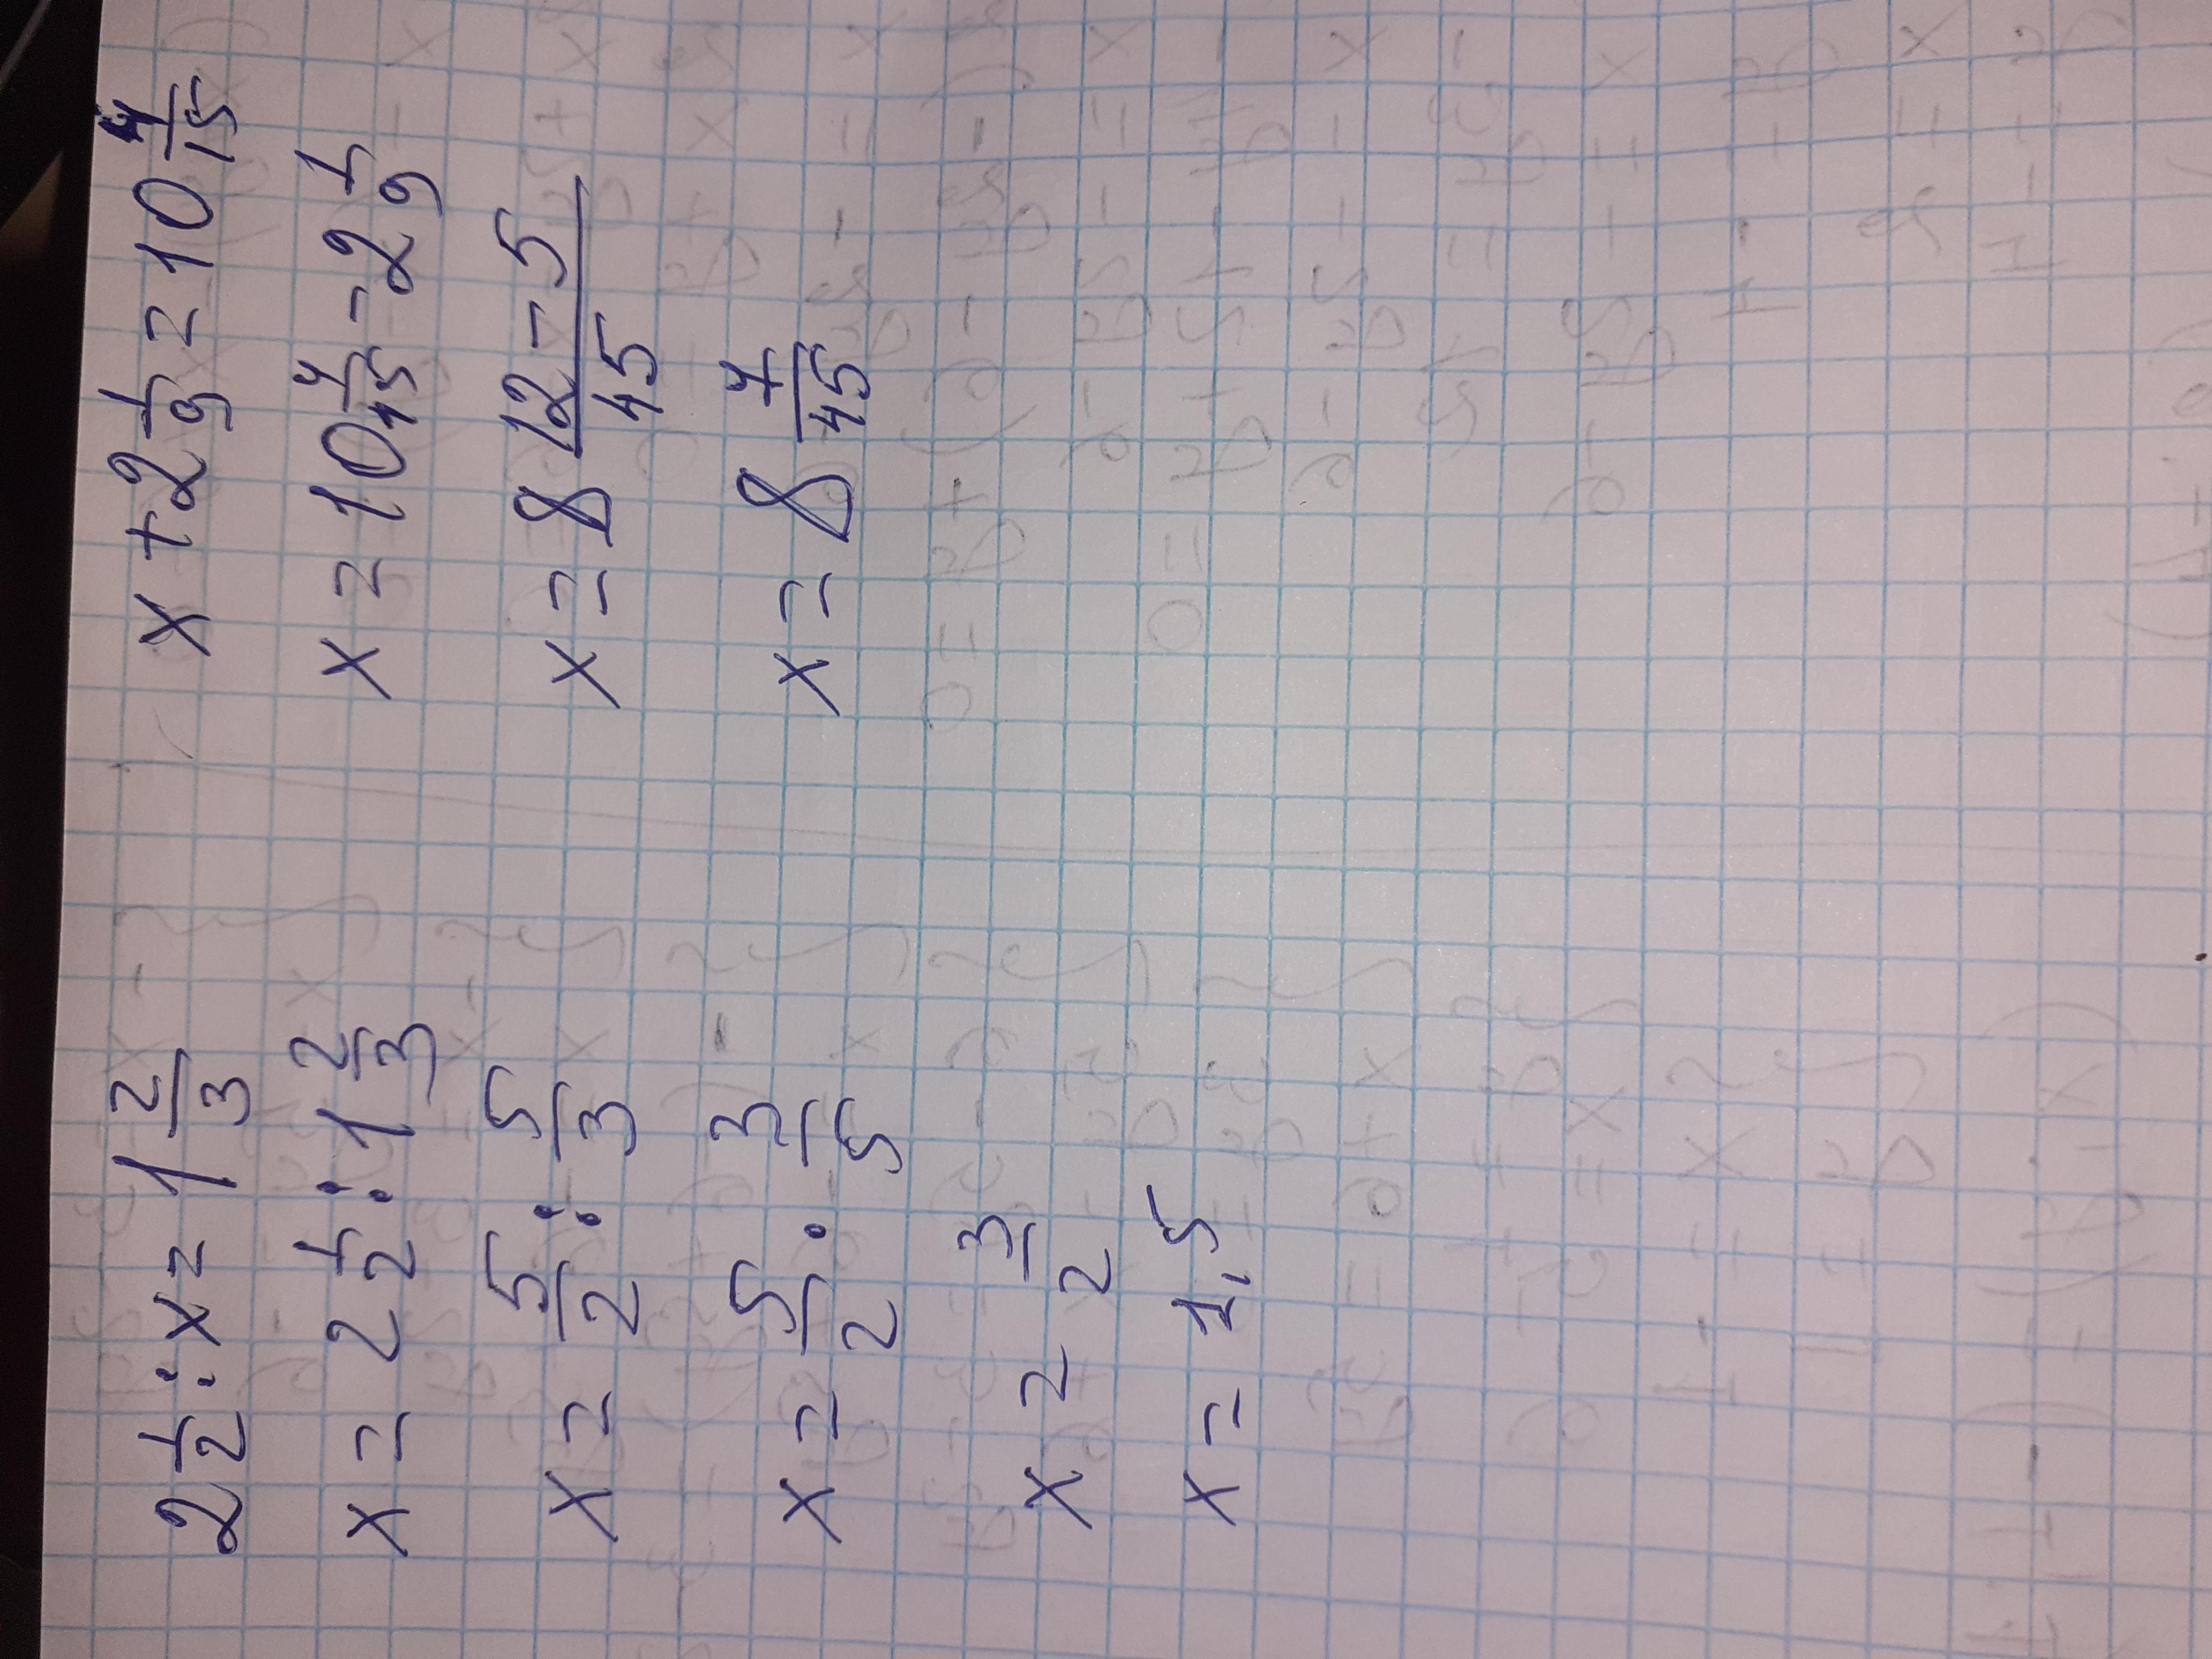 2 1/2 : x = 1 2/3
x = 2 1/2 : 1 2/3
x = 5/2 : 5/3
x = 5/2 · 3/5
x = 3/2
x = 1,5
x + 2 1/9 = 10 4/15
x = 10 4/15 - 2 1/9
x = 8 (12-5)/45
x = 8 7/45